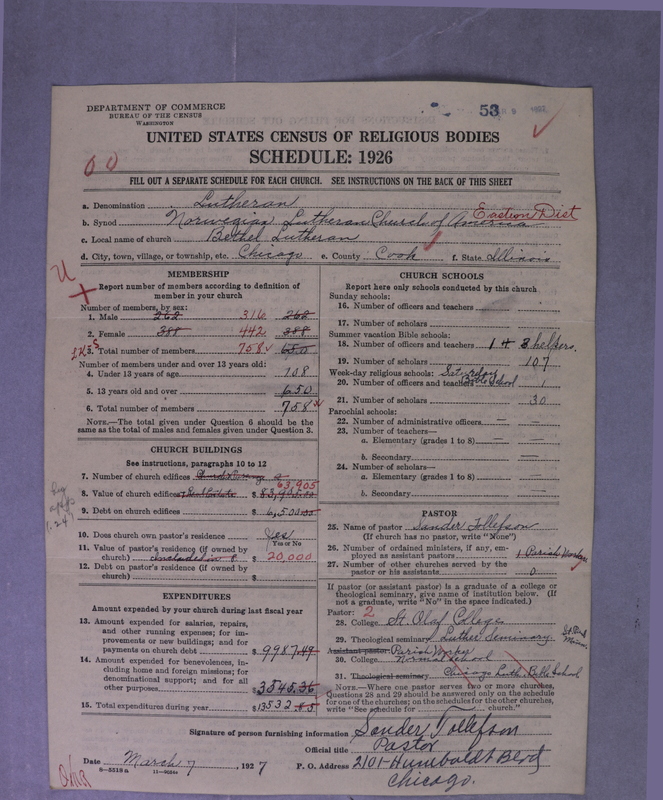 DEPARTMENT OF COMMERCE
BUREAU OF THE CENSUS
WASHINGTON
53
UNITED STATES CENSUS OF RELIGIOUS BODIES
SCHEDULE: 1926
FILL OUT A SEPARATE SCHEDULE FOR EACH CHURCH. SEE INSTRUCTIONS ON THE BACK OF THIS SHEET
a. Denomination Lutheran
b. Synod Norwegian Lutheran Church of America Eastern Dist
c. Local name of church Bethel Lutheran
d. City, town, village, or township, etc. Chicago e. County Cook f. State Illinois
MEMBERSHIP
Report number of members according to definition of
member in your church
Number of members, by sex:
1. Male 262 316 262
2. Female 388 442 388
3. Total number of members 758 650
Number of members under and over 13 years old:
4. Under 13 years of age 108
5. 13 years old and over 650
6. Total number of members 758
NOTE.—The total given under Question 6 should be
same as the total of males and females given under Question 3.
CHURCH BUILDINGS
See instructions, paragraphs 10 to 12
7. Number of church edifices
63,905
8. Value of church edifices $ 83,905.00
9. Debt on church edifices $ 6,500.00
10. Does church own pastor's residence? Yes
Yes or No
11. Value of pastor's residence (if owned by
church) included in 8 $ 20,000
12. Debt on pastor's residence (if owned by
church) $
EXPENDITURES
Amount expended by your church during last fiscal year
13. Amount expended for salaries, repairs,
and other running expenses; for im-
provements or new buildings; and for
payments on church debt $ 9987.49
14. Amount expended for benevolences, in-
cluding home and foreign missions; for
denominational support; and for all
other purposes $ 3545.36
15. Total expenditures during year $ 13532.85
CHURCH SCHOOLS
Report here only schools conducted by this church
Sunday schools:
16. Number of officers and teachers
17. Number of scholars
Summer vacation Bible schools:
18. Number of officers and teachers 1 + 3 helpers.
19. Number of scholars 107
Week-day religious schools: Saturday
20. Number of officers and teachers Bible School 1
21. Number of scholars 30
Parochial schools:
22. Number of administrative officers — —
23. Number of teachers—
a. Elementary (grades 1 to 8) — —
b. Secondary — —
24. Number of scholars—
a. Elementary (grades 1 to 8) — —
b. Secondary — —
PASTOR
25. Name of pastor Sander Tollefson
(If church has no pastor, write "None")
26. Number of ordained ministers, if any, em-
ployed as assistant pastors 1 Parish Worker
27. Number of other churches served by the
pastor or his assistants 0
If pastor (or assistant pastor) is a graduate of a college or
theological seminary, give name of institution below. (If
not a graduate, write "No" in the space indicated.)
Pastor: 2
28. College St. Olaf College
29. Theological seminary Luther Seminary. St Paul
Assistant pastor: Parish Worker
30. College Normal School
31. Theological seminary Chicago Luth. Bible School
NOTE.—Where one pastor serves two or more churches,
Questions 28 and 29 should be answered only on the schedule
for one of the churches; on the schedules for the other churches,
write "See schedule for church."
Signature of person furnishing information Sander Tollefson
Official title Pastor
Date March 7, 1927 P. O. Address 2101-Humboldt Blvd
8—5518a 11—9034a
Chicago.